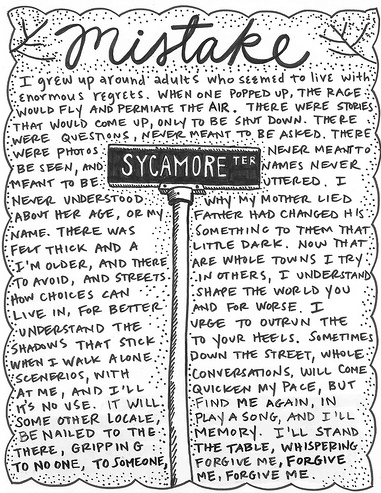 Mistake
I grew up around adults who seemed to live with
enormous regrets. WHEN ONE POPPED UP, THE RAGE
WOULD FLY AND PERMIATE THE AIR. THERE WERE STORIES
THAT WOULD COME UP, ONLY TO BE SHUT DOWN. THERE
WERE QUESTIONS, NEVER MEANT TO BE ASKED. THERE
WERE PHOTOS NEVER MEANT TO
BE SEEN, AND NAMES NEVER
MEANT TO BE UTTERED. I
SYCAMORE TER
NEVER UNDERSTOOD WHY MY MOTHER LIED
ABOUT HER AGE, OR MY FATHER HAD CHANGED HIS
NAME. THERE WAS SOMETHING TO THEM THAT
FELT THICK AND A LITTLE DARK. NOW THAT
I'M OLDER, AND THERE ARE WHOLE TOWNS I TRY
TO AVOID, AND STREETS IN OTHERS, I UNDERSTAND
HOW CHOICES CAN SHAPE THE WORLD YOU
LIVE IN, FOR BETTER AND FOR WORSE. I
UNDERSTAND THE URGE TO OUTRUN THE
SHADOWS THAT STICK TO YOUR HEELS. SOMETIMES
WHEN I WALK ALONE DOWN THE STREET, WHOLE
SCENERIOS, WITH CONVERSATIONS, WILL COME
AT ME, AND I'LL QUICKEN MY PACE, BUT
IT'S NO USE. IT WILL FIND ME AGAIN, IN
SOME OTHER LOCALE, PLAY A SONG, AND I'LL
BE NAILED TO THE MEMORY. I'LL STAND
THERE, GRIPPING THE TABLE, WHISPERING
TO NO ONE, TO SOMEONE, FORGIVE ME, FORGIVE
ME, FORGIVE ME.